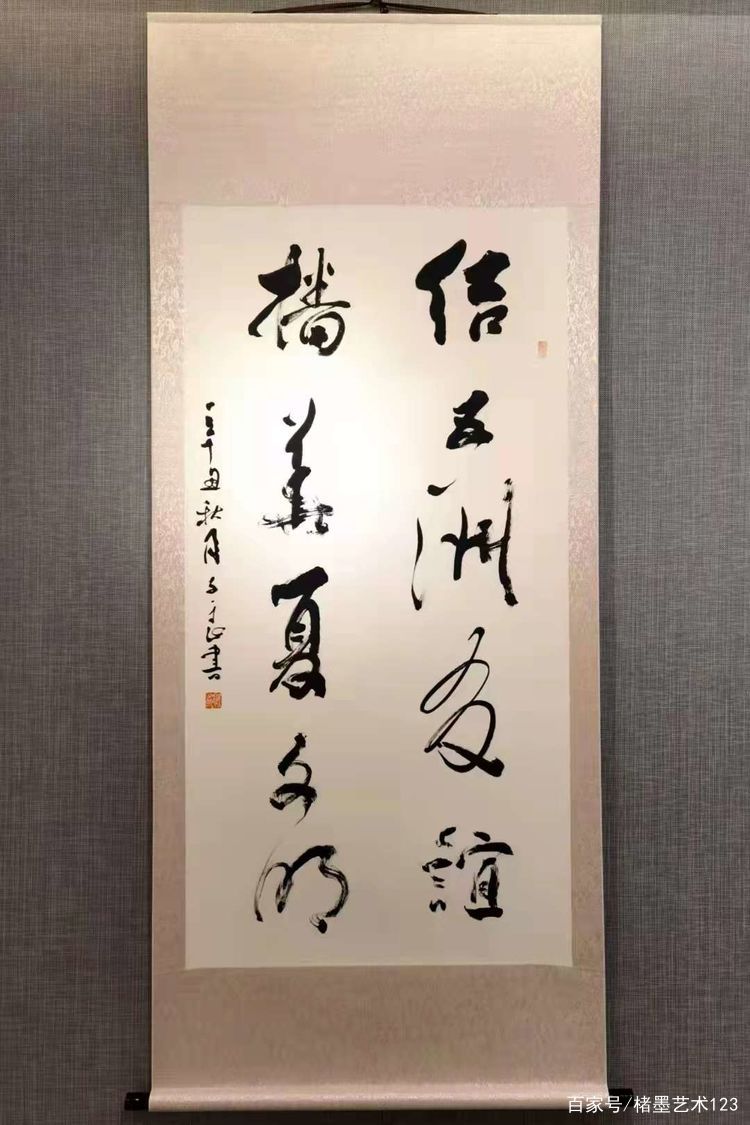 結五洲友誼
播華夏文明
辛丑秋月書
百家号/楮墨艺术123